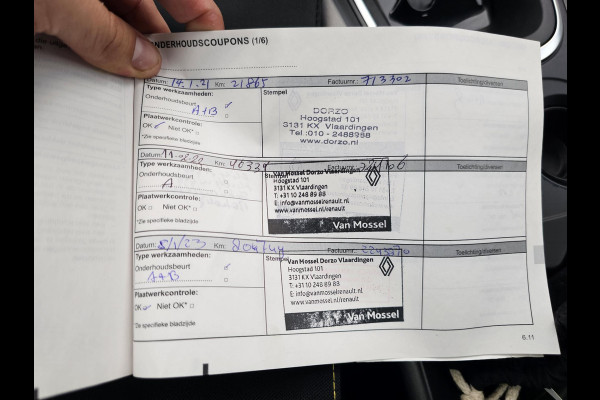 ONDERHOUDSCOUPONS (1/6)
Datum: 14.1.21 Km: 21865 Factuurnr.: 713302 Toelichting/diversen
Type werkzaamheden: Stempel
Onderhoudsbeurt ✓
A+B
Plaatwerkcontrole:
OK ✓ Niet OK* □
*Zie specifieke bladzijde
DORZO
Hoogstad 101
3131 KX Vlaardingen
Tel :010 - 2488988
www.dorzo.nl
Datum: Km: Factuurnr.: Toelichting/diversen
Type werkzaamheden: Stempel
Onderhoudsbeurt
A
Plaatwerkcontrole:
OK □ Niet OK* □
*Zie specifieke bladzijde
Van Mossel Dorzo Vlaardingen
Hoogstad 101
3131 KX Vlaardingen
T: +31 10 248 89 88
E: info@vanmosselrenault.nl
www.vanmosselrenault.nl/renault
Van Mossel
Datum: Km: Factuurnr.: Toelichting/diversen
Type werkzaamheden: Stempel
Onderhoudsbeurt ✓
A+B
Plaatwerkcontrole:
OK ✓ Niet OK* □
*Zie specifieke bladzijde
Van Mossel Dorzo Vlaardingen
Hoogstad 101
3131 KX Vlaardingen
T: +31 10 248 89 88
E: info@vanmosselrenault.nl
www.vanmossel.nl/renault
Van Mossel
6.11